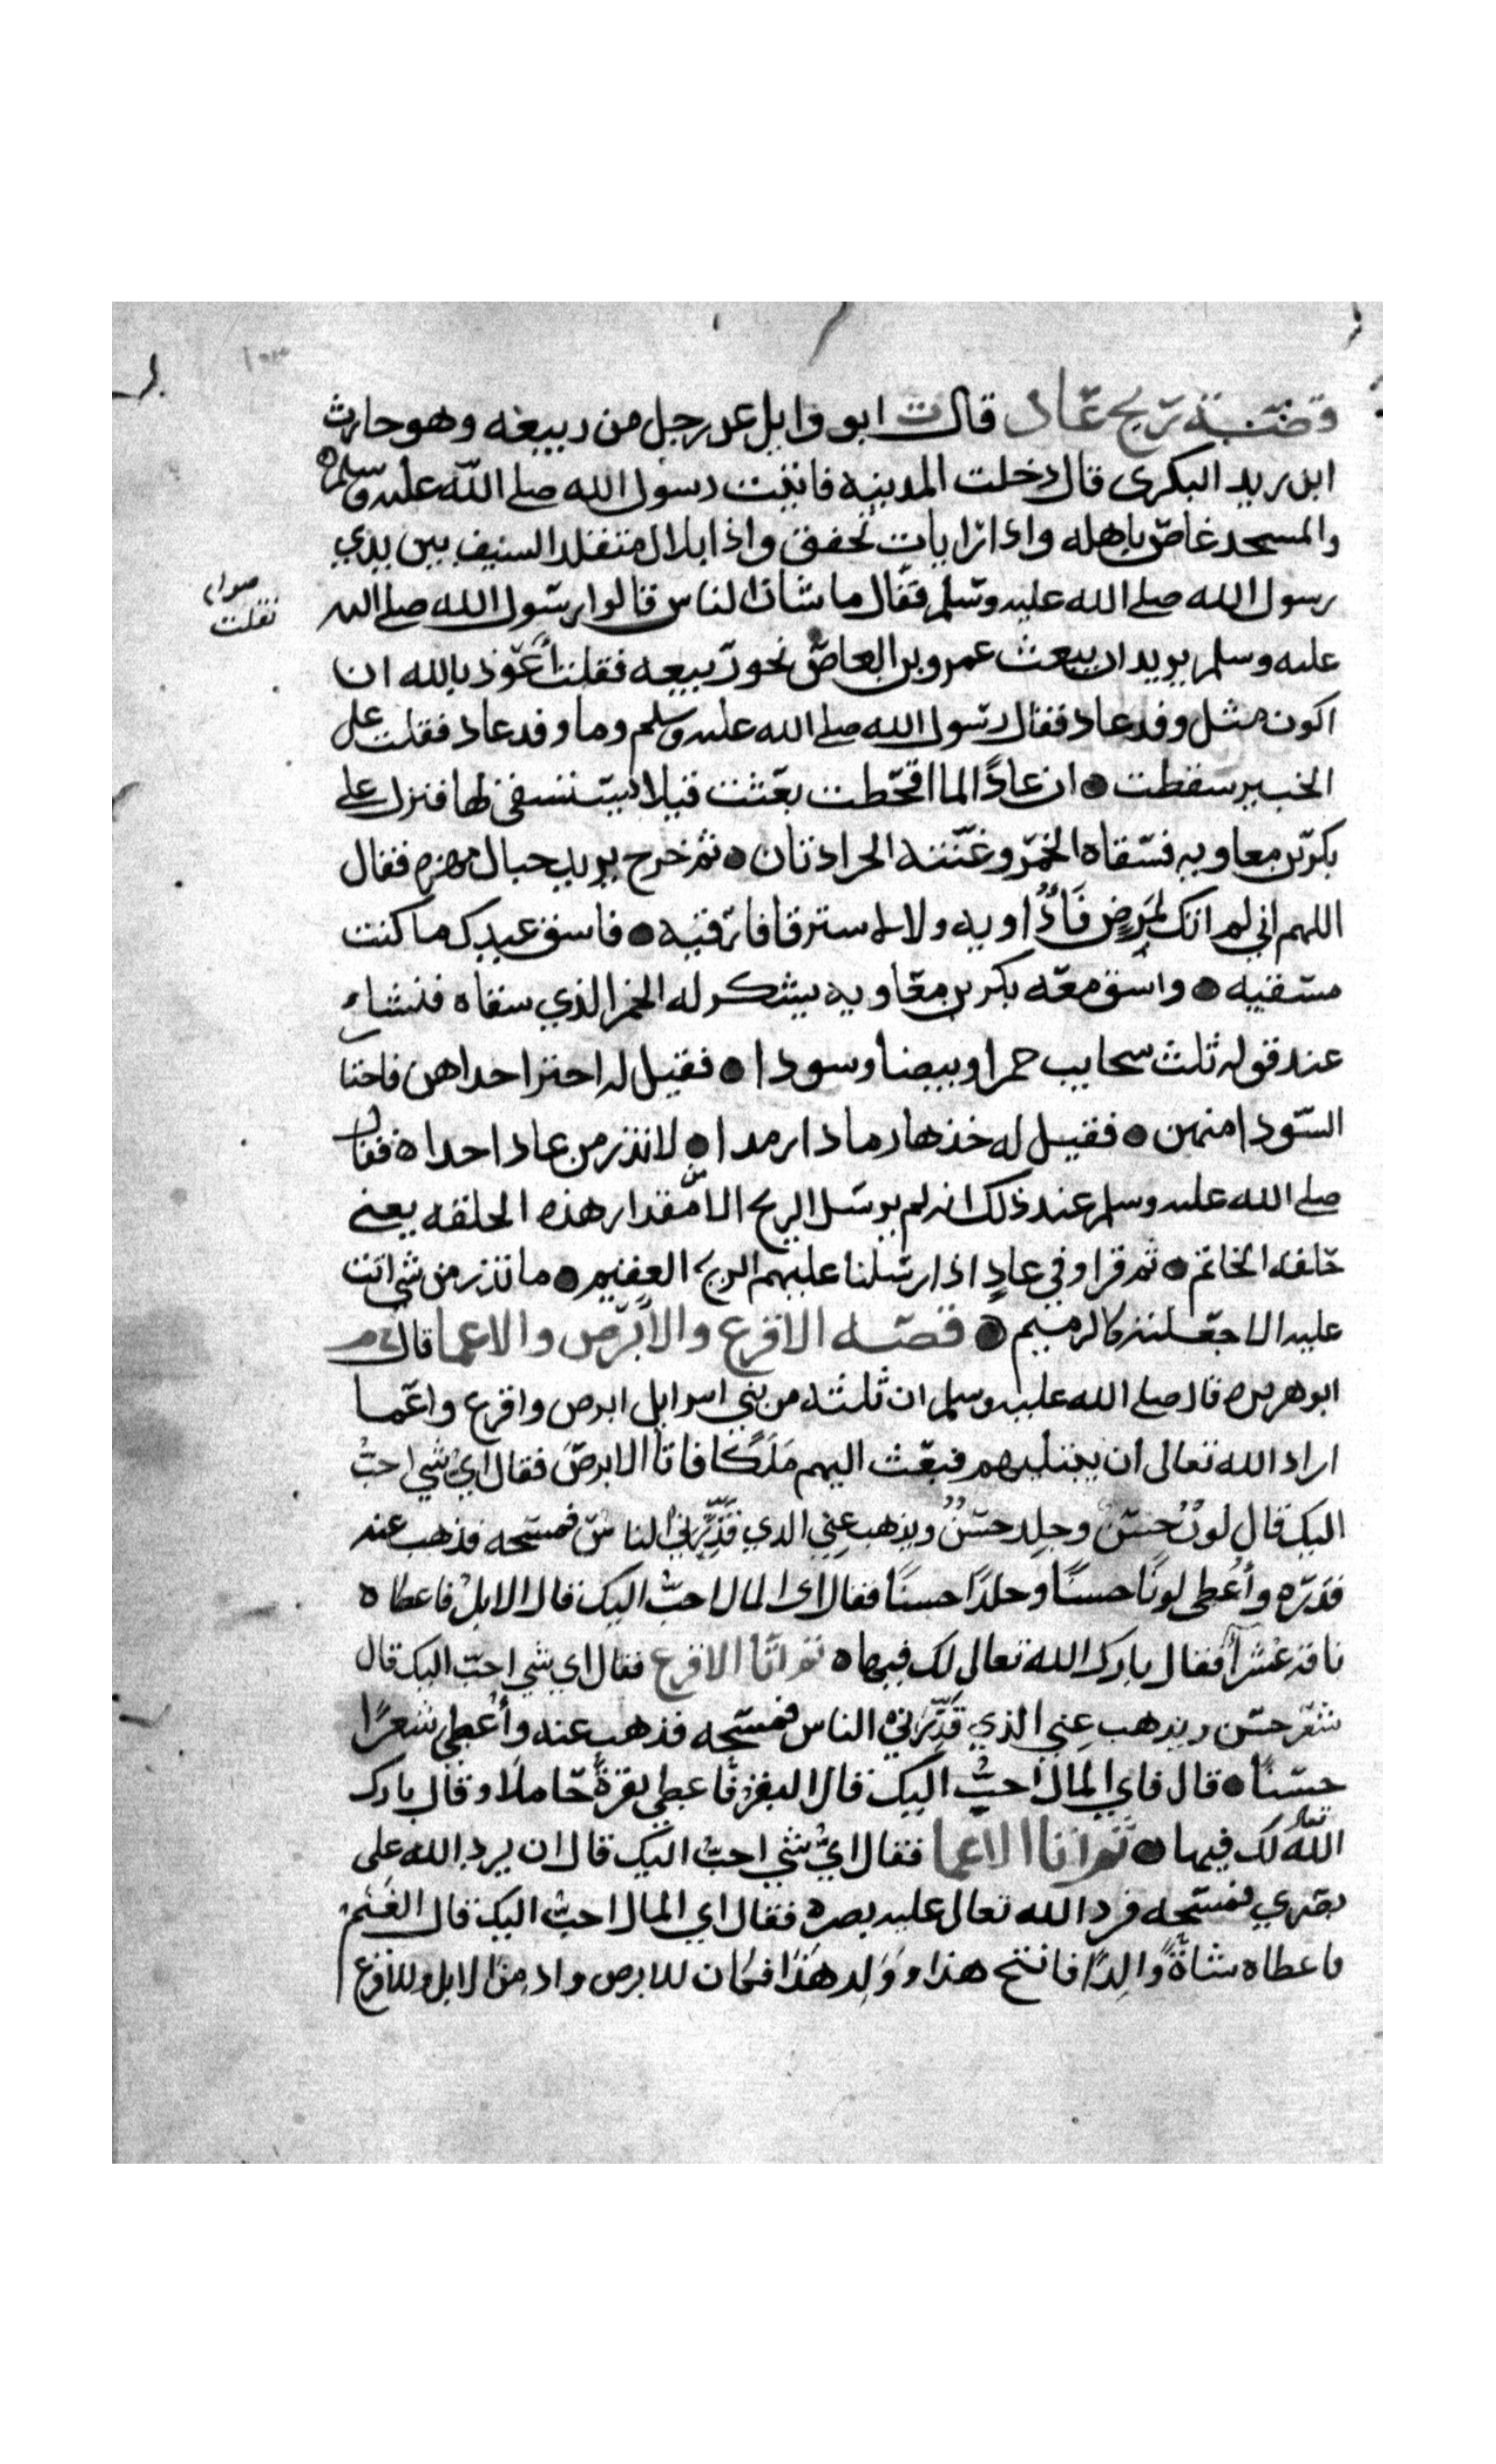 قصة ريح عاد قال ابو وايل عن رجل من ربيعه وهو حارث
ابن يريد البكري قال دخلت المدينه فاتيت رسول الله صلى الله عليه وسلم
والمسجد غاصّ باهله واذا رايات تخفق واذا بلال متقلد السيف بين يدي
رسول الله صلى الله عليه وسلم فقال ما شان الناس قالوا رسول الله صلى الله
صوابه فقلت
عليه وسلم يريد ان يبعث عمرو بن العاص نحو ربيعه فقلت أعوذ بالله ان
اكون مثل وفد عاد فقال رسول الله صلى الله عليه وسلم وما وفد عاد فقلت على
الخبير سقطت ان عادًا لما اقحطت بعثت قيلا يستسقي لها فنزل على
بكر بن معاويه فسقاه الخمر وغنته الجرادتان ثم خرج يريد جبال مهره فقال
اللهم اني لم اتك لمريض فأداويه ولا لمسترقا فارقيه فاسق عبدك ما كنت
مسقيه واسق معه بكر بن معاويه يشكر له الخمر الذي سقاه فنشاء
عند قوله ثلث سحايب حمرا وبيضا وسودا فقيل له اختر احداهن فاختا
السودا منهن فقيل له خذها رمادا رمدا لا تذر من عاد احدا فقال
صلى الله عليه وسلم عند ذلك انه لم يرسل الريح الا مقدار هذه الحلقه يعني
حلقه الخاتم ثم قرا وفي عادٍ اذ ارسلنا عليهم الريح العقيم ما تذر من شي اتت
عليه الا جعلته كالرميم قصه الاقرع والابرص والاعما قال
ابو هريره قال صلى الله عليه وسلم ان ثلثه من بني اسرايل ابرص واقرع واعما
اراد الله تعالى ان يبتليهم فبعث اليهم مَلَكًا فاتا الابرص فقال ايّ شي احبّ
اليك قال لونٌ حسنٌ وجلد حسنٌ ويذهب عني الذي قذّرني الناس فمسحه فذهب عنه
قذره وأعطى لونًا حسنًا وجلدًا حسنًا فقال اى المال احبّ اليك قال الابل فاعطاه
ناقه عشرآ فقال بارك الله تعالى لك فيها ثم اتا الاقرع فقال اي شي احبّ اليك قال
شعر حسن ويذهب عني الذي قذّرني الناس فمسحه فذهب عنه وأعطي شعرًا
حسنًا قال فاي المال احبّ اليك قال البقر فاعطي بقرةً حاملًا وقال بارك
الله تعالى لك فيها ثم اتا الاعما فقال ايّ شي احبّ اليك قال ان يرد الله على
بصري فمسحه فرد الله تعالى عليه بصره فقال اي المال احبّ اليك قال الغنم
فاعطاه شاةً والِدًا فانتج هذا وولد هذا فكان للابرص واد من الابل وللاقرع